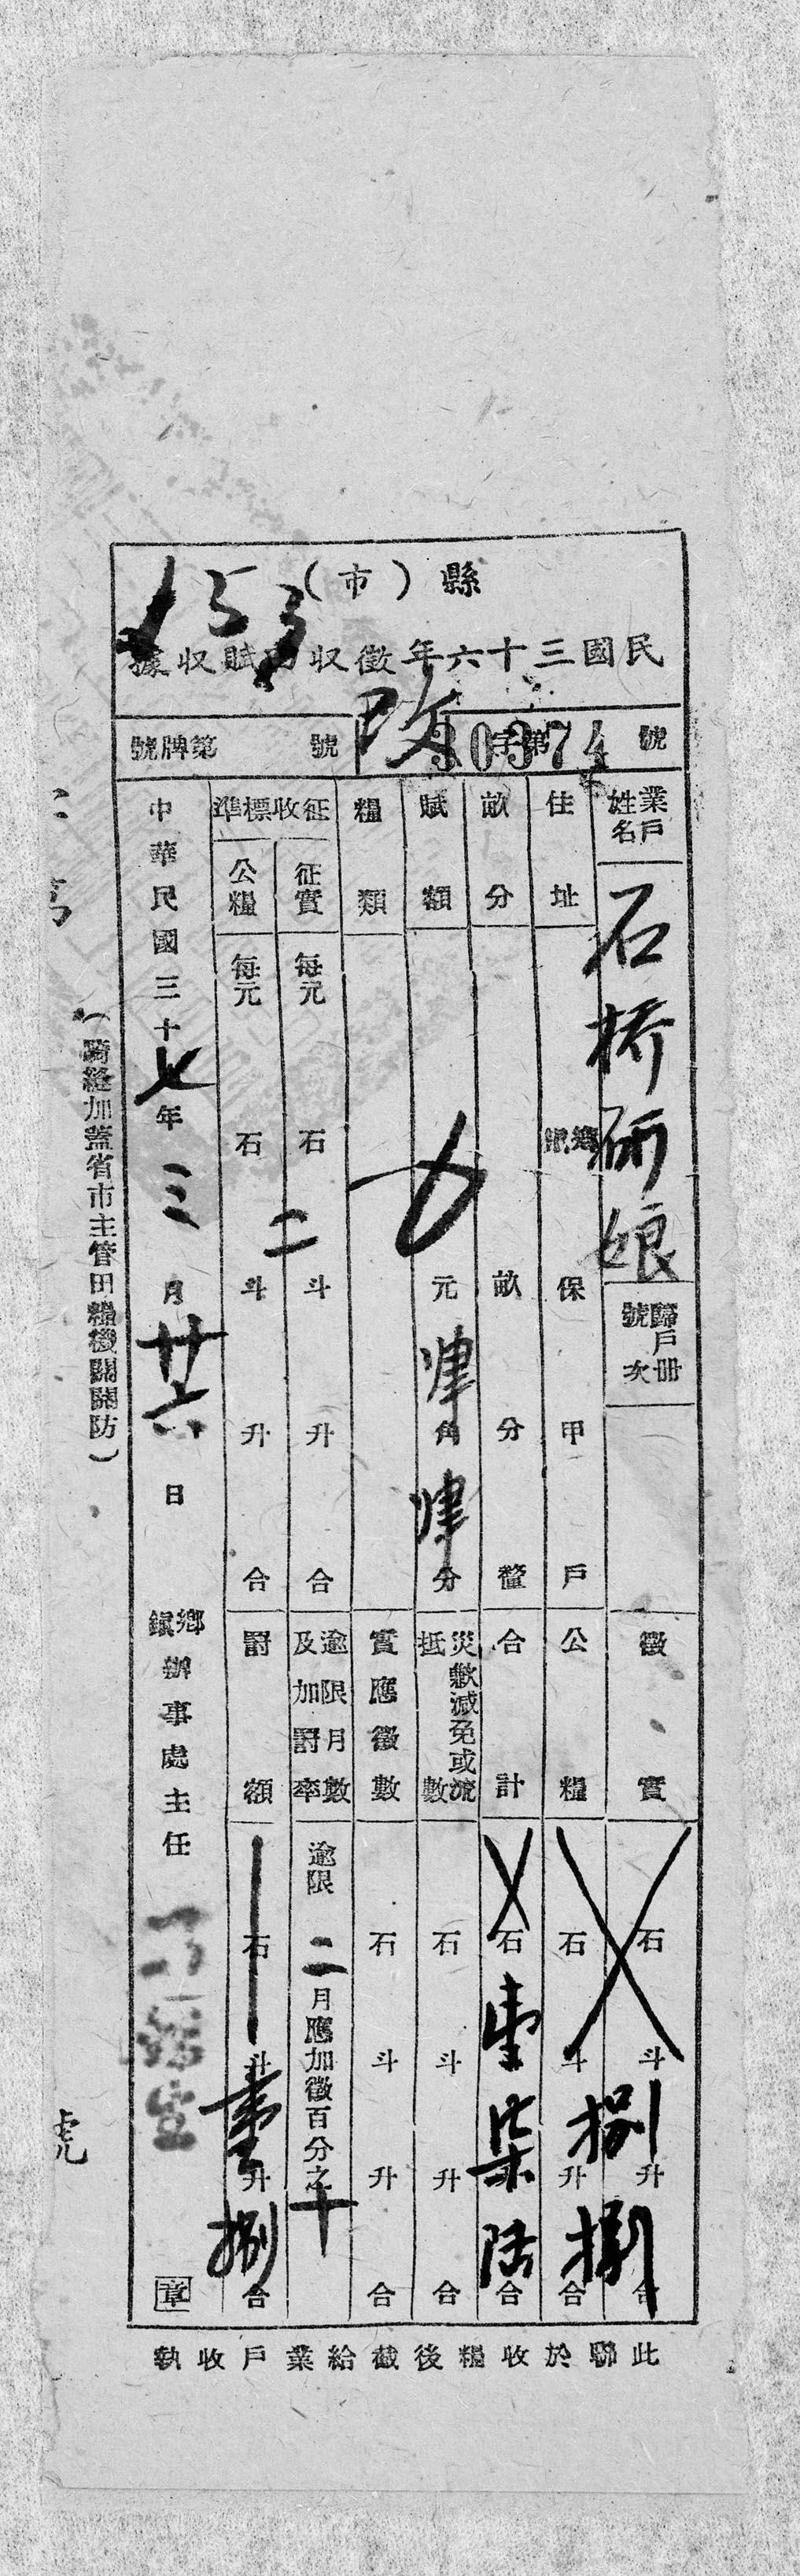 縣（市）
153
民國三十六年徵收田賦收據
改字第30374號
號牌第 號
業戶姓名 石橋研娘
歸戶冊號次
徵實 石 斗 捌升 捌合
住址 鄉鎮 保 甲 戶
公糧 石 斗 捌升 捌合
畝分 畝 分 釐
合計 石 壹斗 柒升 陆合
賦額 元 肆角 肆分
災歉減免或流抵數 石 斗 升 合
糧類
實應徵數 石 斗 升 合
征收標準 征實 每元 石 二斗 升 合
公糧 每元 石 二斗 升 合
逾限月數及加罰率 逾限二月應加徵百分之十
罰額 石 斗 壹升 捌合
中華民國三十七年三月廿六日
鄉鎮辦事處主任 章
（騎縫加蓋省市主管田糧機關關防）
號
此聯於收糧後截給業戶收執